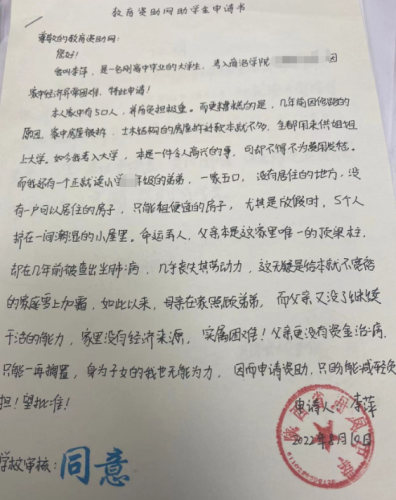 教育资助网助学生申请书
尊敬的教育资助网:
您好!
我叫李萍,是一名刚高中毕业的大学生,考入商洛学院 因
家中经济异常困难,特此申请!
本人家中有5口人,并历史担极重。而更糟糕的是,几年前因修路的
原因,家中房屋被拆,土木结构的房屋拆补款本就不多,全都用来供姐姐
上大学。如今我考入大学,本是一件令人高兴的事,可却不得不为费用发愁。
而我还有一个正就读小 年级的弟弟,一家五口,没有居住的地方,没
有一户可以居住的房子,只能租便宜的房子,尤其是放假时,5个人
挤在一间潮湿的小屋里。命运弄人,父亲本是这家里唯一的顶梁柱,
却在几年前被查出尘肺病,几乎丧失劳动力,这无疑是给本就不富裕
的家庭雪上加霜,如此以来,母亲在家照顾弟弟,而父亲又没了继续
干活的能力,家里没有经济来源,实属困难!父亲更没有资金治病,
只能一再搁置,身为子女的我也无能为力,因而申请资助,只盼能减轻负
担!望批准!
申请人:李萍
2022年8月10日
学校审核:同意